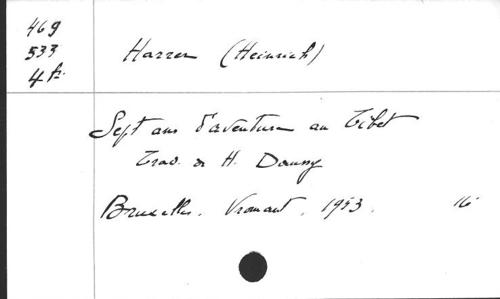 469
533
4 fr.
Harrer (Heinrich)
Sept ans d'aventure au Tibet
Trad. de H. Daussy
Bruxelles. Vromant. 1953. 16